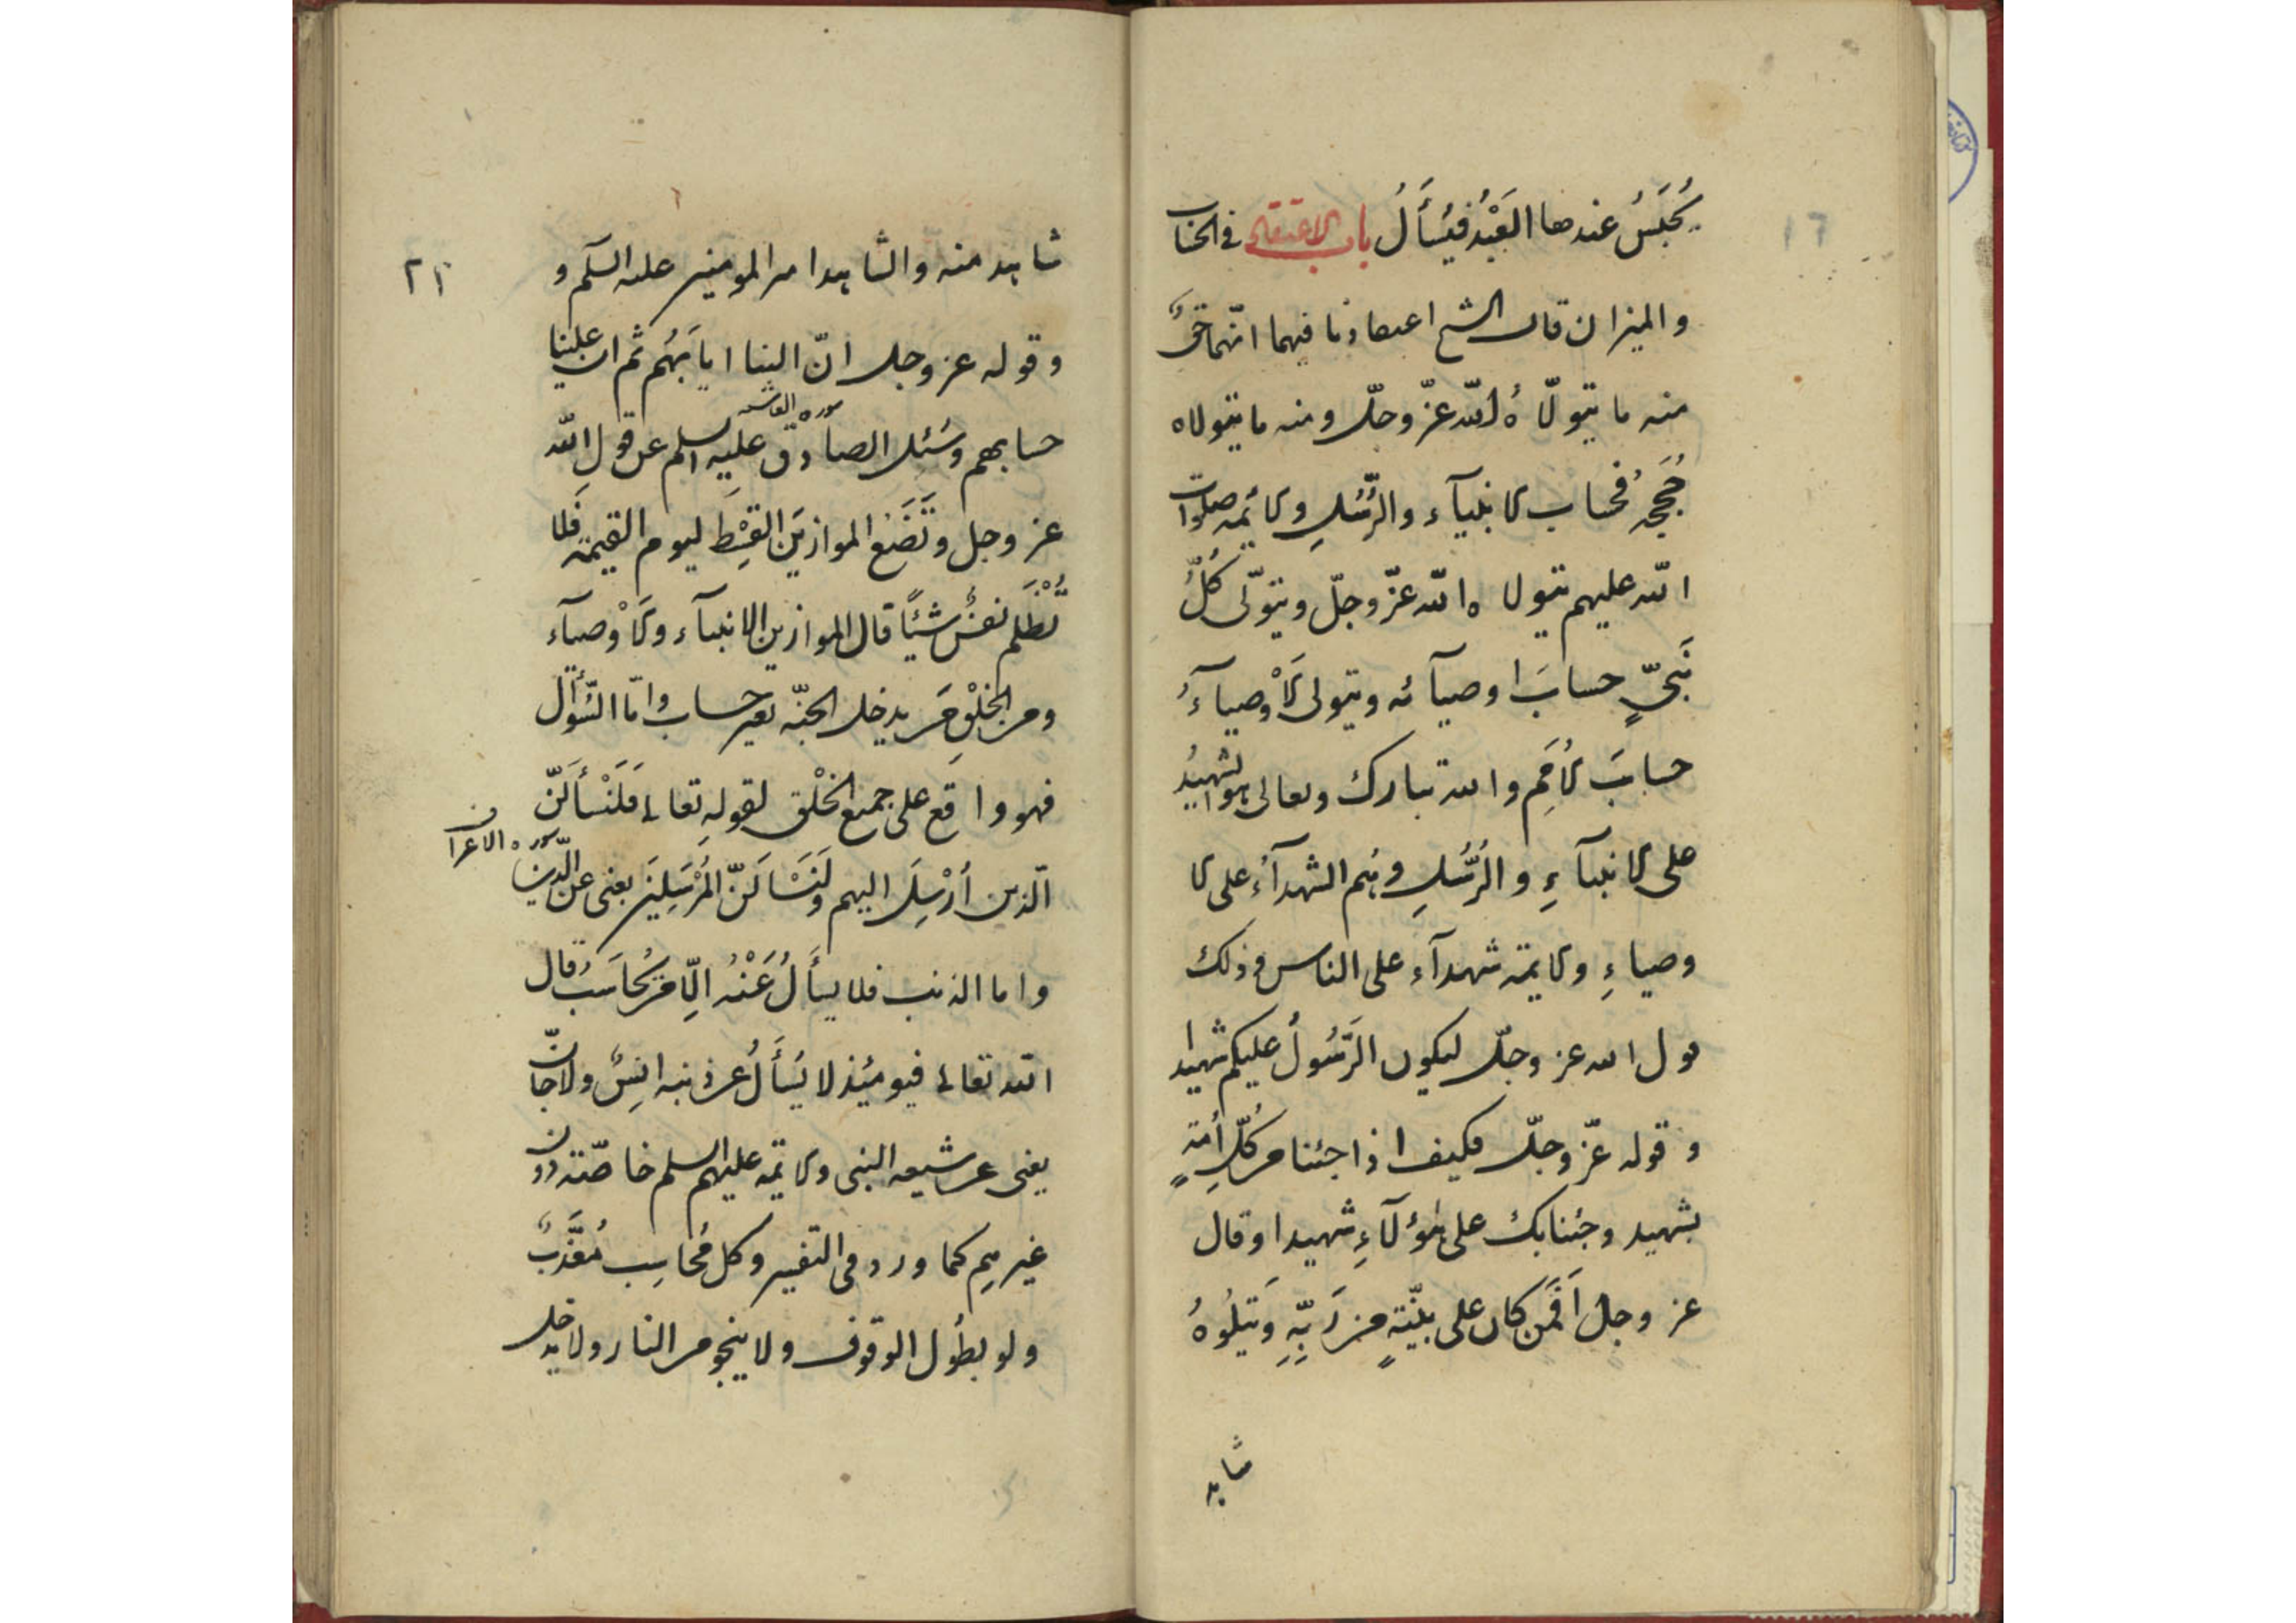 يُحْبَسُ عندها العَبْدُ فيُسأَلُ باب الاعتقاد في الحساب
والميزان قال الشيخ اعتقادنا فيهما انّهما حقٌّ
منه ما يتولّاهُ الله عزّ وجلّ ومنه ما يتولاه
حُجَجُهُ فحساب الانبيآء والرُّسُلِ والائمه صلوات
الله عليهم يتولاه الله عزّ وجلّ ويتولّى كُلُّ
نَبِيٍّ حسابَ اوصيآئه ويتولى الاَوْصيآءُ
حسابَ الاُمَمِ والله تبارك وتعالى هو الشهيدُ
على الانبيآءِ والرُّسُلِ وهم الشهدآءُ على الا
وصياءِ والائمة شهدآء على الناس وذلك
قول الله عز وجلّ ليكون الرَّسُولُ عليكم شهيدا
وقوله عزّ وجلّ فكيف اذا جئنا من كُلِّ أمةٍ
بشهيد وجئنا بك على هؤلآءِ شهيدا وقال
عز وجل اَفَمَن كان على بيّنةٍ من رَبِّهِ وَيَتْلُوهُ
شاهد
١٦
شاهد منه والشاهد امير المومنين عليه السلم و
وقوله عز وجل انّ الينا ايابَهُم ثم ان علينا
سوره الغاشيه
حسابهم وسُئل الصادق عليه السلم عن قول الله
عز وجل وَنَضَعُ الموازينَ القِسْطَ ليوم القيمة فَلا
تُظْلَم نفسٌ شيئًا قال الموازين الانبيآء والاَوْصيآء
ومن الخلْقِ مَن يدخل الجنّه بغير حساب وامّا السُّؤال
فهو واقع على جميع الخلْق لقولِهِ تعالى فَلَنَسْأَلَنّ
سوره الاعراف
الّذين أُرْسِلَ اليهم ولَنَسْاَلَنّ المُرْسَلِينَ يعني عن الدّين
واما الذنب فلا يسأَلُ عَنْهُ الّا من يُحاسَبُ قال
الله تعالى فيومئِذ لا يُسأَلُ عن ذنبه اِنسٌ ولا جانّ
يعني من شيعه النبي والائمه عليهم السلم خاصّته دون
غيرهم كما ورد في التفسير وكل مُحاسب مُعَذَّبٌ
ولو بطُول الوقوف ولا ينجو من النار ولا يدخل
٢١